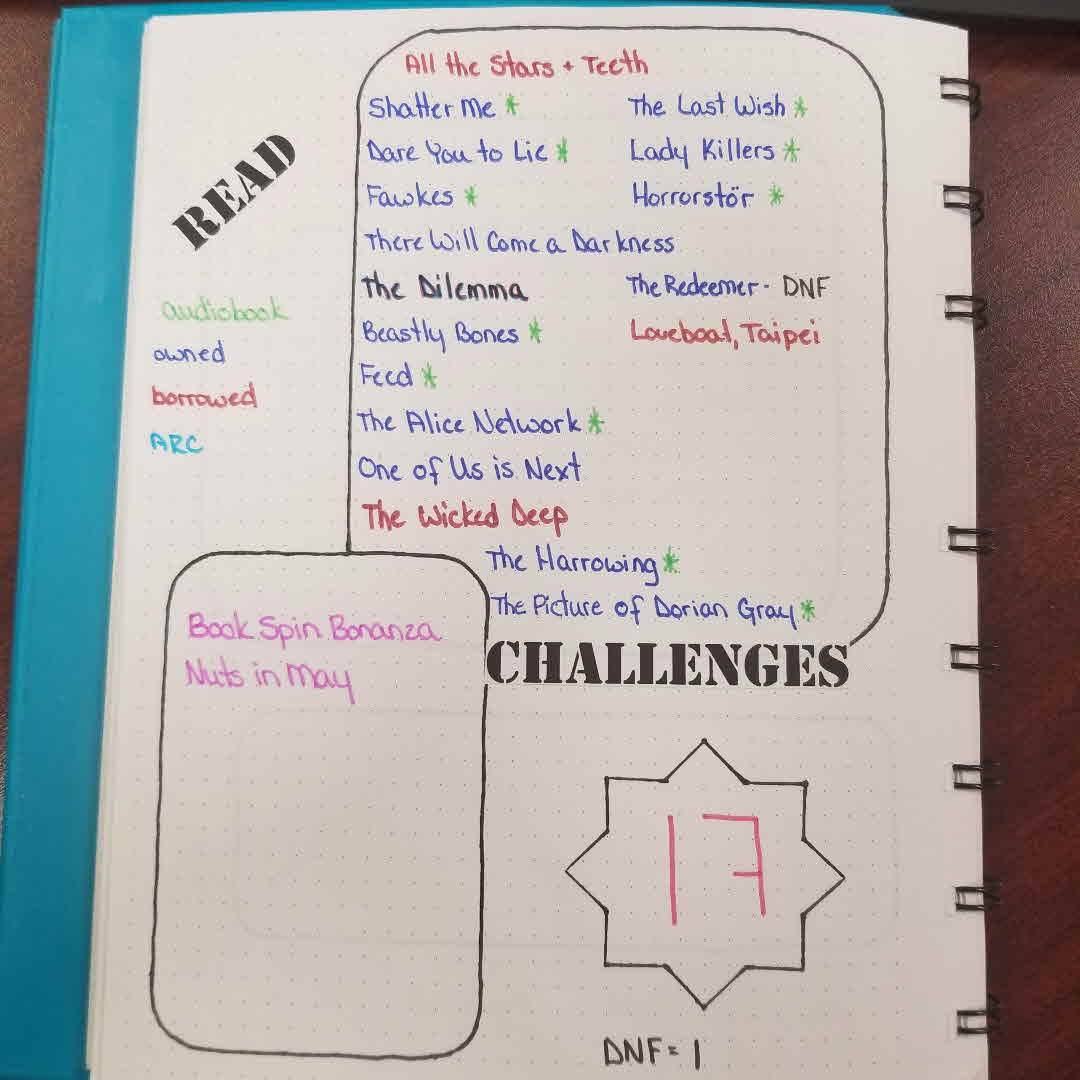 READ
audiobook
owned
borrowed
ARC
All the Stars + Teeth
Shatter Me *
Dare You to Lie *
Fawkes *
There Will Come a Darkness
The Dilemma
Beastly Bones *
Feed *
The Alice Network *
One of Us is Next
The Wicked Deep
The Harrowing *
The Picture of Dorian Gray *
The Last Wish *
Lady Killers *
Horrorstör *
The Redeemer - DNF
Loveboat, Taipei
CHALLENGES
Book Spin Bonanza
Nuts in May
17
DNF = 1